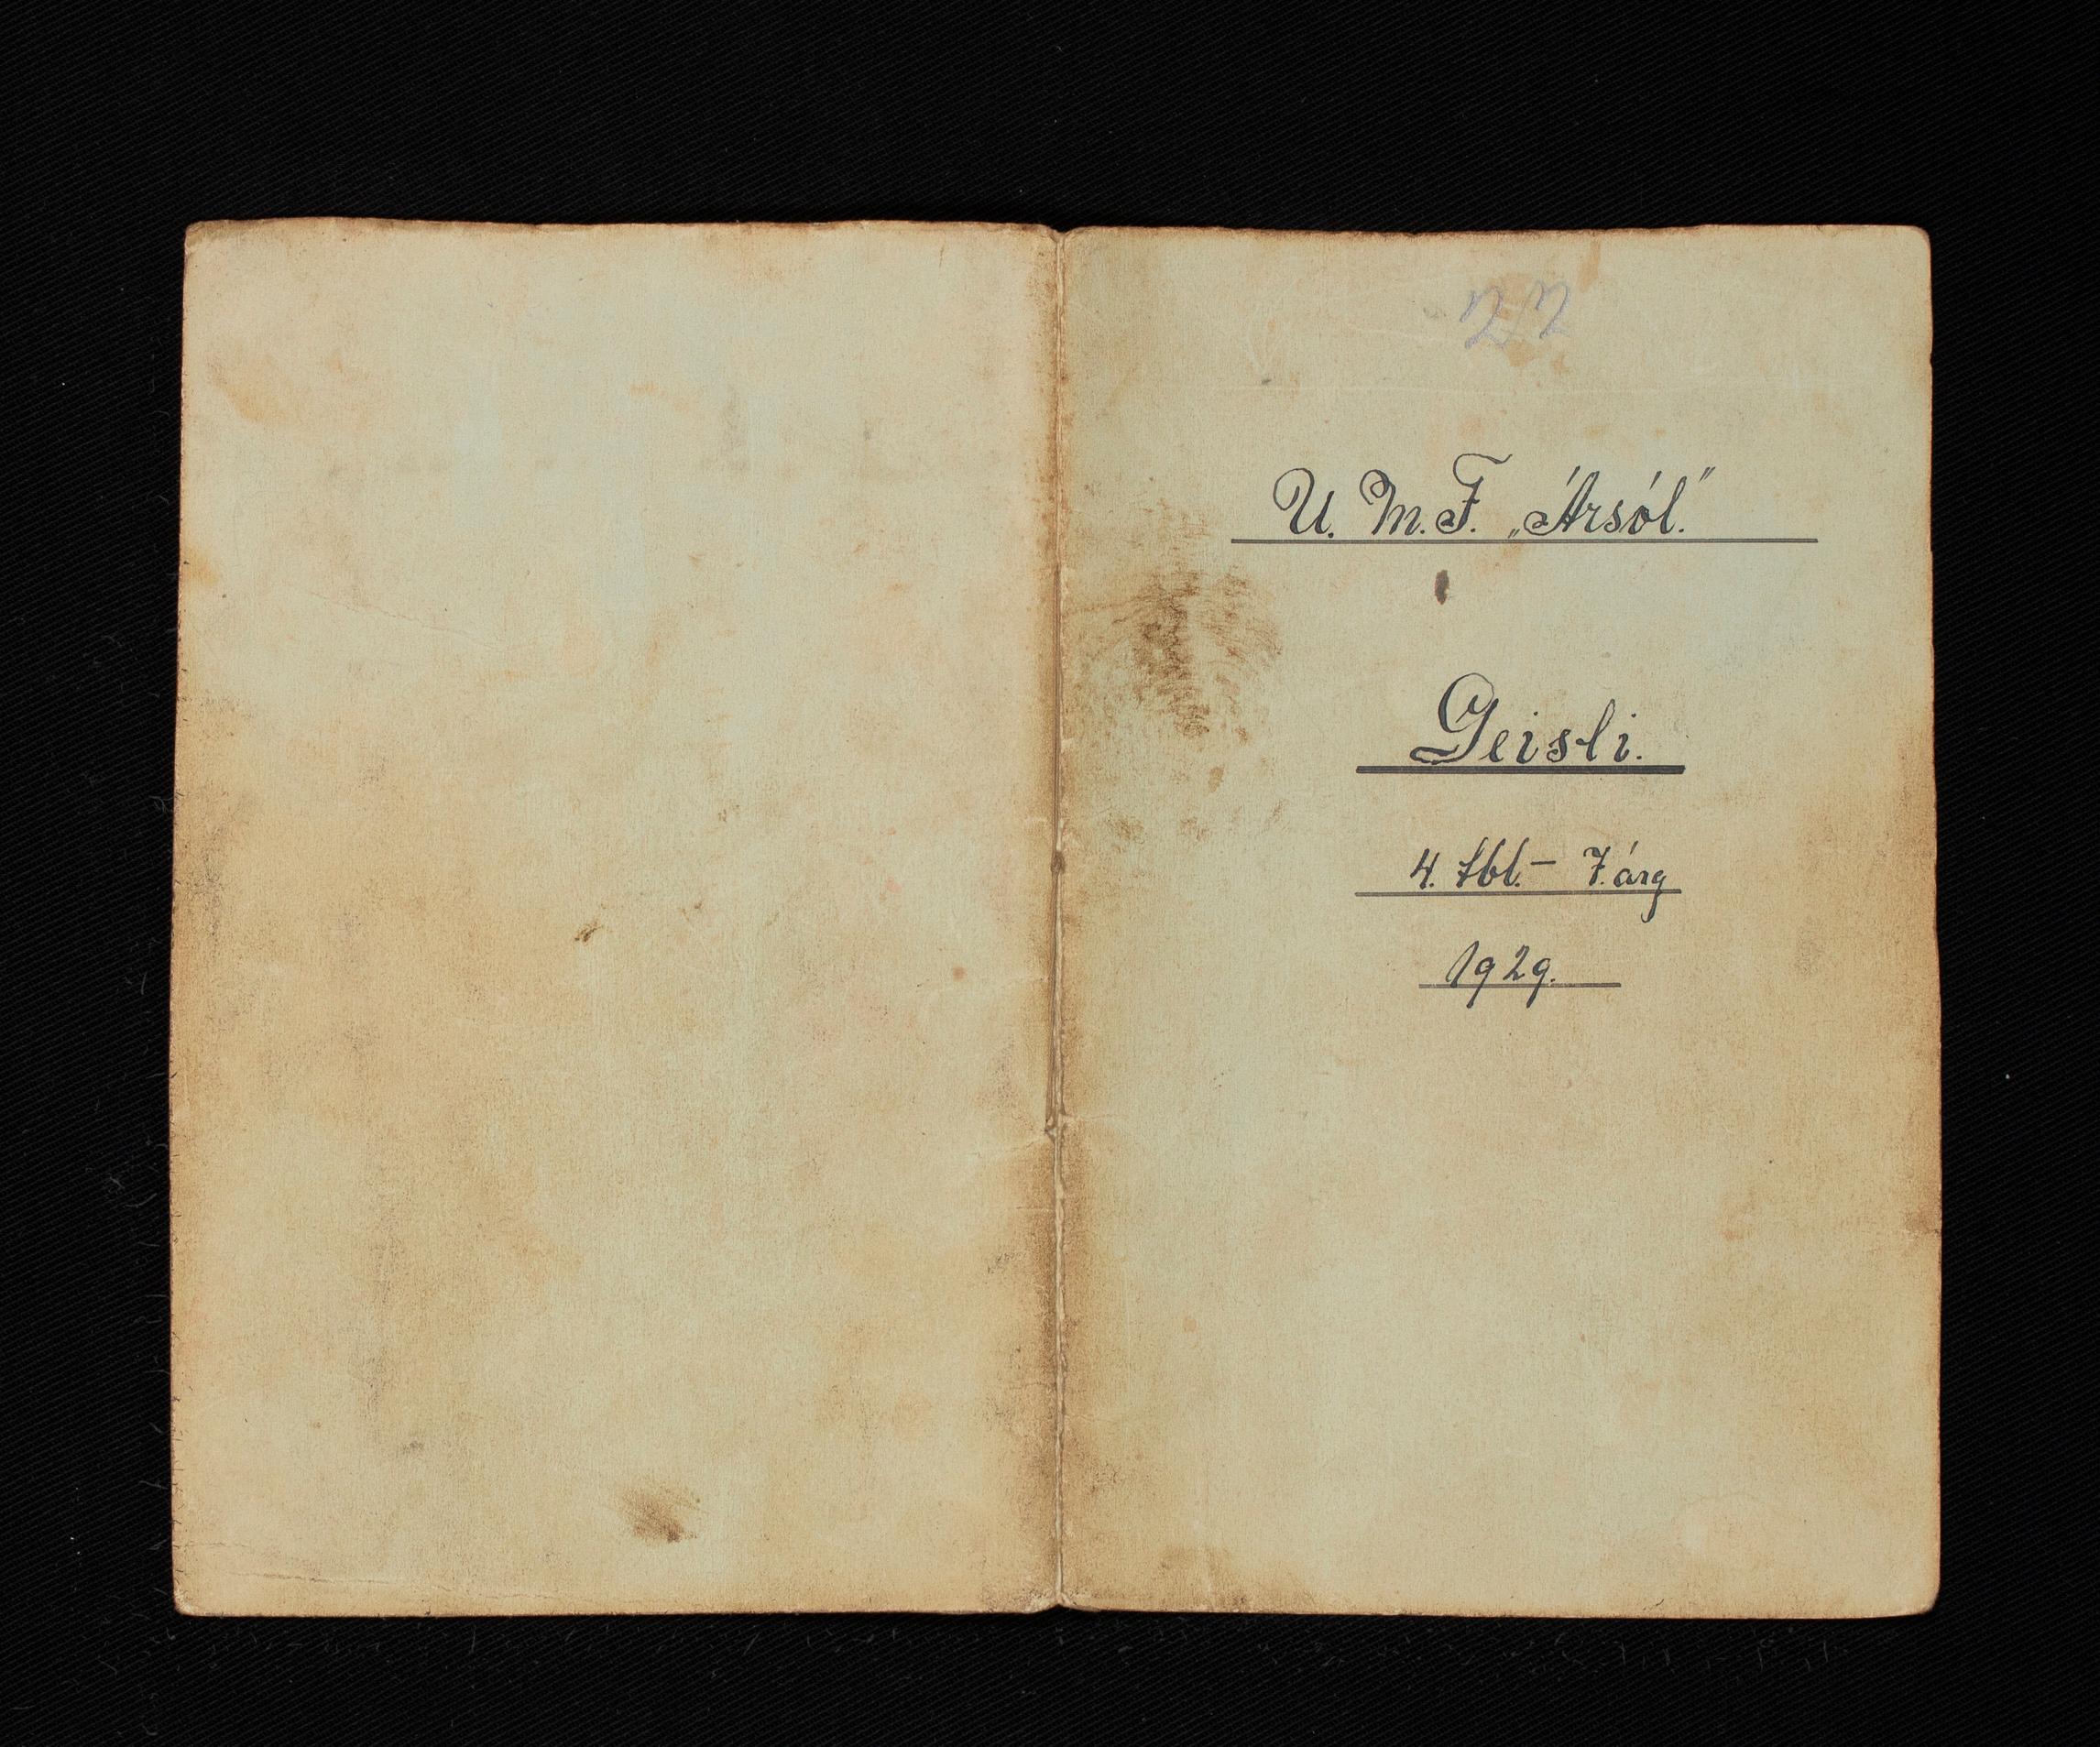 U. M. F. „Ársól."
Geisli.
4. tbl. – 7. árg
1929.